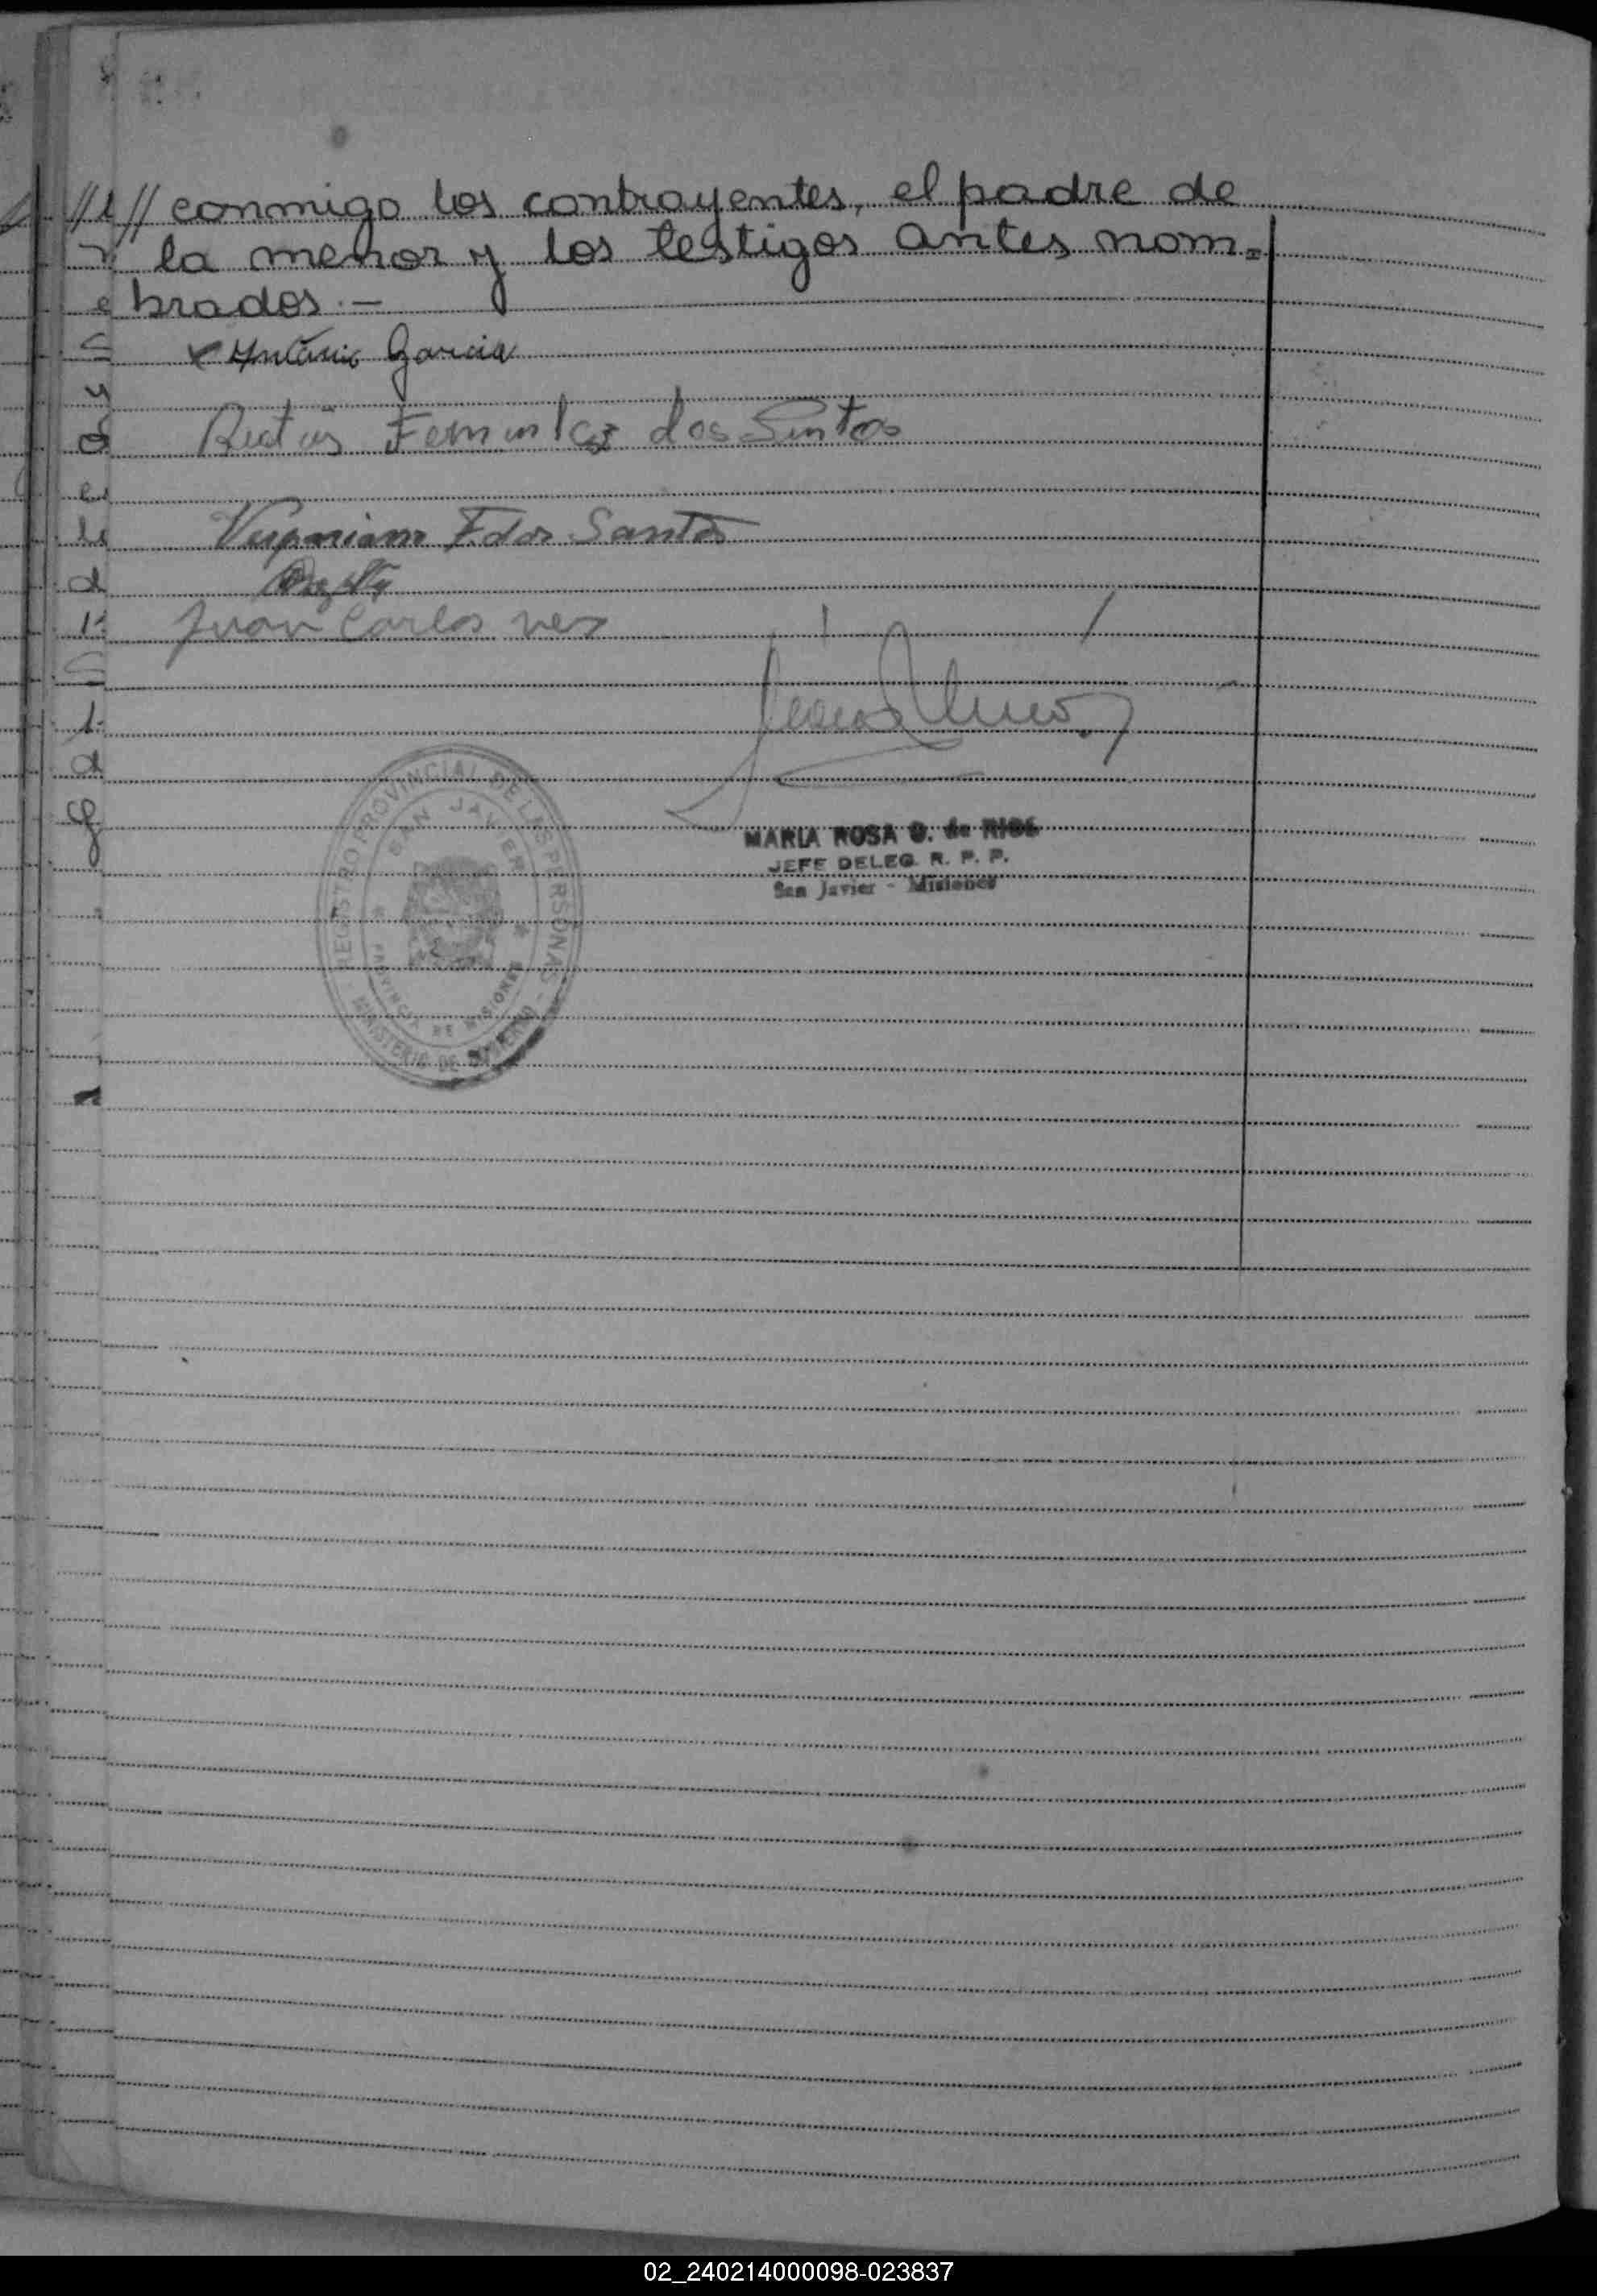 //l// conmigo los contrayentes, el padre de
la menor y los testigos antes nom=
brados.—
x Antonio Garcia
dos Santos
F. dos Santos
Juan Carlos
REGISTRO PROVINCIAL DE LAS PERSONAS -
SAN JAVIER
PROVINCIA DE MISIONES
MINISTERIO DE GOBIERNO
MARIA ROSA G. de RIOS
JEFE DELEG. R. P. P.
San Javier - Misiones
02_240214000098-023837